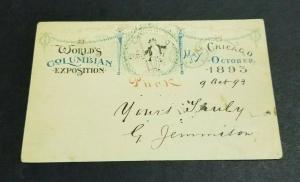 World's
Columbian
Exposition
Chicago
October,
1893
Puck
9 Oct 93
Yours Truly
G Jemmison